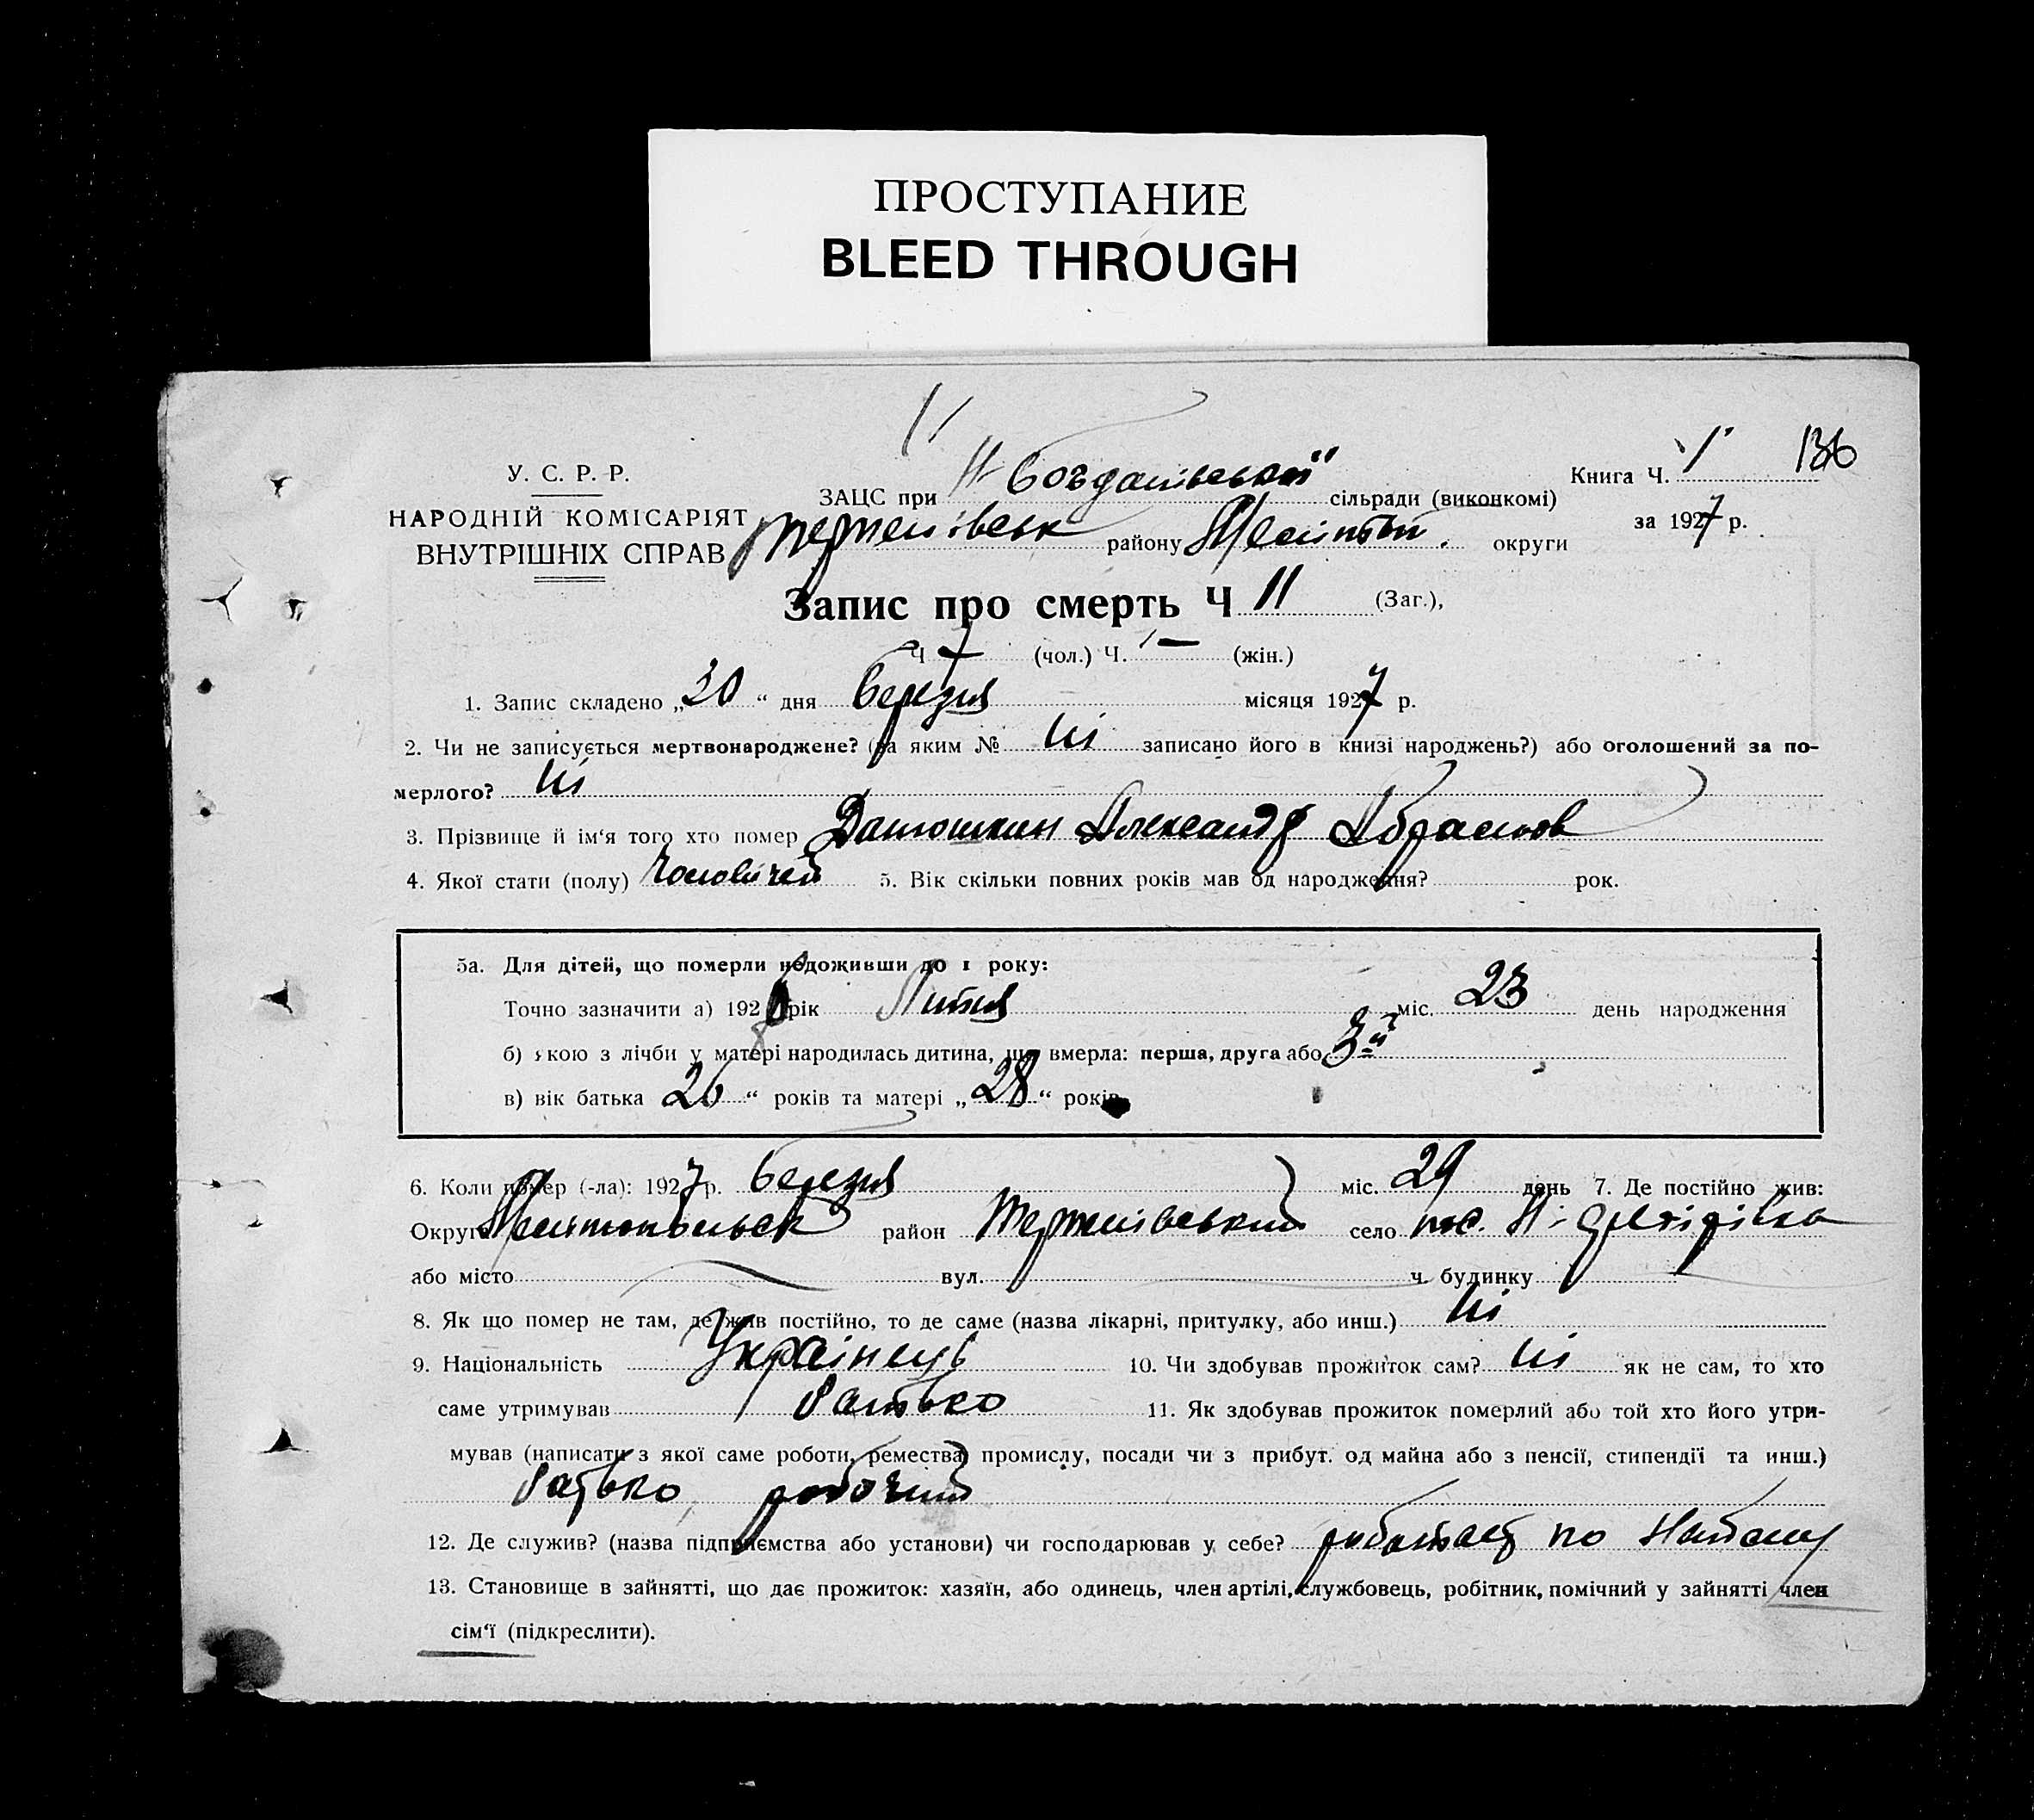 ПРОСТУПАНИЕ
BLEED THROUGH
11
У. С. Р. Р.
НАРОДНІЙ КОМІСАРІЯТ
ВНУТРІШНІХ СПРАВ
ЗАЦС при Н Богданівської сільради (виконкомі)
Книга Ч. 1 136
районy Меліпт. округи
за 1927 р.
Запис про смерть Ч 11 (Заг.),
Ч 7 (чол.) Ч. — (жін.)
1. Запис складено „30“ дня березня місяця 1927 р.
2. Чи не записується мертвонароджене? (за яким № ні записано його в книзі народжень?) або оголошений за по-
мерлого? ні
3. Прізвище й ім‘я того хто помер Ванюшкин Олександр Абрамов
4. Якої стати (полу) Чоловічей 5. Вік скільки повних років мав од народження? рок.
5а. Для дітей, що померли недоживши до 1 року:
Точно зазначити а) 192 рік Липня міс. 23 день народження
б) якою з лічби у матері народилась дитина, що вмерла: перша, друга або 3й
в) вік батька 26“ років та матері „28“ років
6. Коли помер (-ла): 1927 р. березня міс. 29 день 7. Де постійно жив:
Округа Мелитопольск район село пос. Н-
або місто вул. ч. будинку
8. Як що помер не там, де жив постійно, то де саме (назва лікарні, притулку, або инш.) ні
9. Національність Українець 10. Чи здобував прожиток сам? ні як не сам, то хто
саме утримував батько 11. Як здобував прожиток померлий або той хто його утри-
мував (написати з якої саме роботи, ремества, промислу, посади чи з прибут. од майна або з пенсії, стипендії та инш.)
батько робочий
12. Де служив? (назва підприємства або установи) чи господарював у себе? работает по Найому
13. Становище в зайнятті, що дає прожиток: хазяїн, або одинець, член артілі, службовець, робітник, помічний у зайнятті член
сім‘ї (підкреслити).